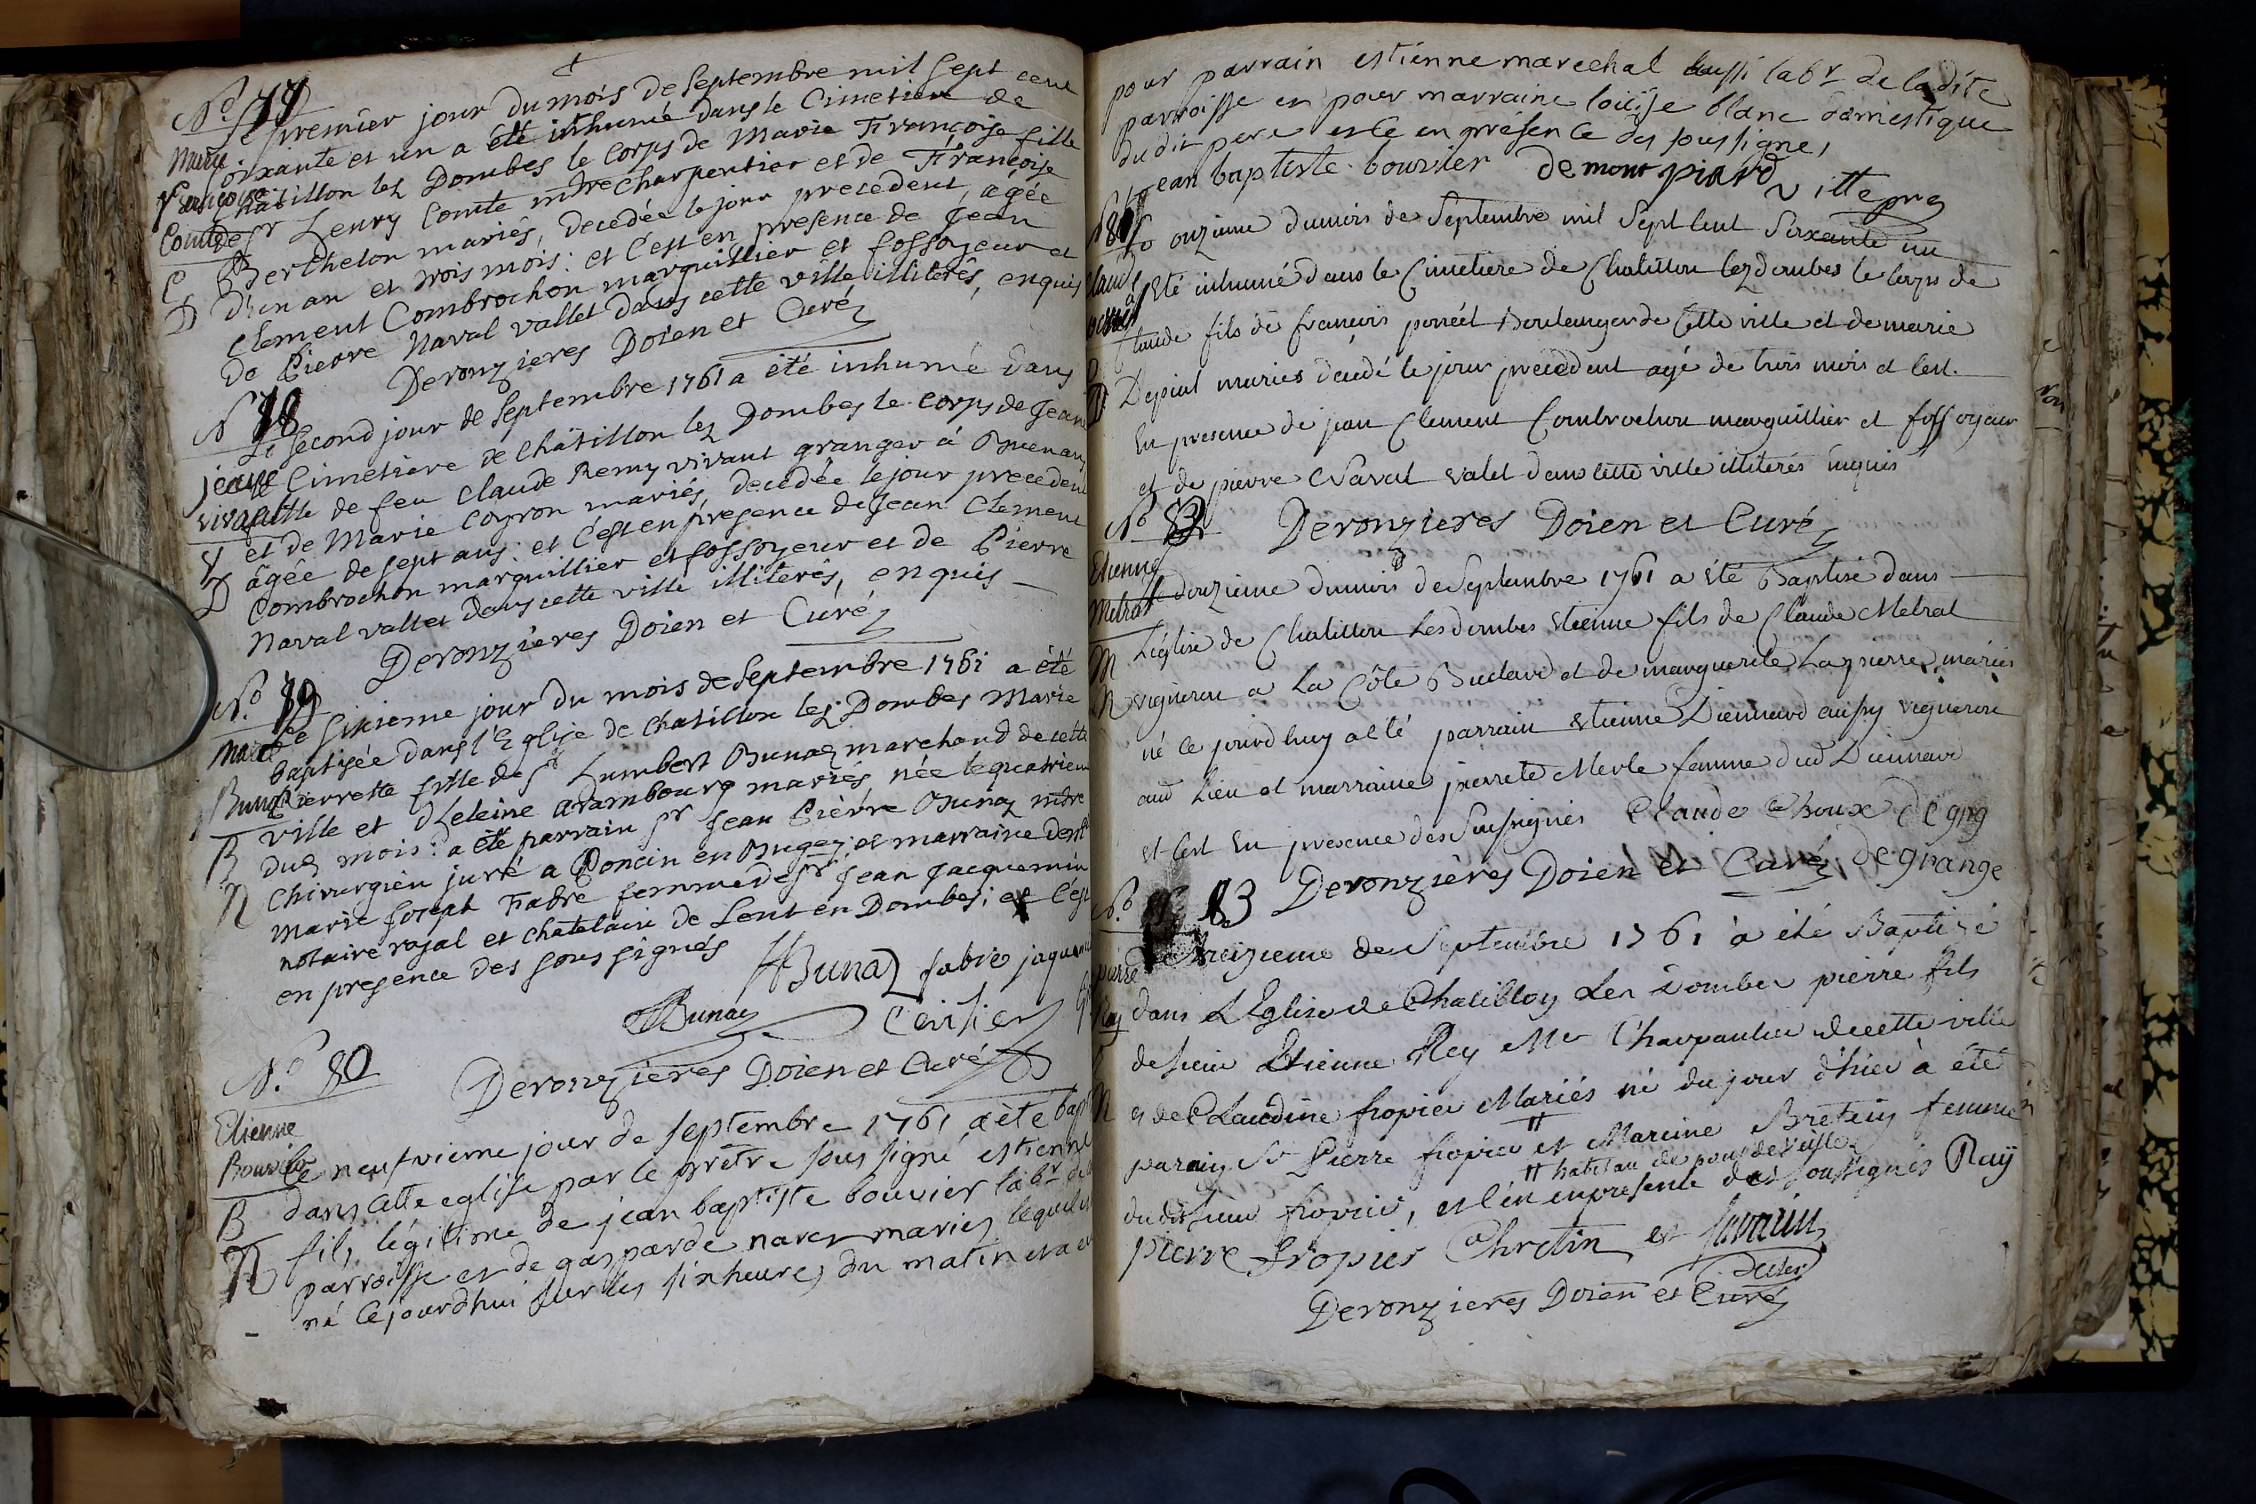 N.º 77
Le premier jour du mois de Septembre mil sept cent
soixante et un a été inhumé dans le Cimetiere de
Châtillon lez Dombes le corps de Marie Françoise fille
de Sr Leury Comte mtre charpentier et de Françoise
Berthelon mariés, decedée le jour precedent, agée
d'un an et trois mois: et c'est en presence de Jean
Clement Combrochon marguillier et fossoyeur et
de Pierre Naval vallet dans cette ville illiterés, enquis
Deronzieres Doien et Curé
Marie
Françoise
Comte
D
N.º 78
Le second jour de Septembre 1761 a été inhumé dans
le Cimetiere de Châtillon lez Dombes le corps de Jeanne
fille de feu Claude Remy vivant granger à
et de Marie Coyron mariés, decedée le jour precedent
âgée de sept ans: et c'est en presence de Jean Clement
Combrochon marguillier et fossoyeur et de Pierre
Naval vallet dans cette ville illiterés, enquis
Deronzieres Doien et Curé
D
N.º 79
Le sixieme jour du mois de Septembre 1761 a été
baptisée dans l'Eglise de Chatillon lez Dombes Marie
Pierrette fille de Sr Lambert Bunaz marchand de cette
ville et d'Heleine arambourg mariés née le quatrieme
dud mois: a été parrain Sr Jean Pierre Bunaz mtre
Chirurgien juré a Poncin en Bugey et marraine
Marie Joseph Fabre femme de Sr Jean Jacquemin
notaire royal et chatelain de Lent en Dombes; et c'est
en presence des sous signés
Bunaz fabre
Bunaz
Deronzieres Doien et Curé
Marie
Bunaz
B
N
N.º 80
Le neufvieme jour de septembre 1761 a ète
dans cette eglise par le prêtre sous signé estienne
fils légitime de jean baptiste bouvier labr
parroisse et de gasparde mariez lequel est
né cejourdhui sur les six heures du matin et a eu
Etienne
Bouvier
B
N
pour parrain estienne marechal aussi labr de ladite
parroisse et pour marraine loüise blanc domestique
dudit pere et ce en présence des soussignes
jean baptiste bouvier demontpiard
N.º 81
Le onzieme dumois de Septembre mil Sept Cent Soixante un
a Eté inhumé dans le Cimetiere de Chatillon lez dombes le Corps de
Claude fils de francois Boulanger de Cette ville et de marie
Depiat mariés décédé le jour precedent agé de trois mois et c'est
En presence de jean Clement Combrochon marguillier et fossoyeur
et de pierre Naval valet dans cette ville illiterés Enquis
Deronzieres Doien et Curé
Claude
D
N.º 82
Le douzieme dumois de Septembre 1761 a été Baptisé dans
L'église de Chatillon Les dombes Etienne fils de Claude Metrat
vigneron a La Côte et de marguerite Lapierre mariés
né ce jourd'huy a été parrain Etienne Diennard aussy vigneron
aud Lieu et marraine pierrete Merle femme dud Diennard
et c'est En presence des Soussignés Claude Choux
Deronzières Doien et Curé degrange
Etienne
Metrat
N
N.º 83
Le treizieme de Septembre 1761 à été Baptisé
dans L'Eglise de Chatillon Les Dombes pierre fils
de Sieur Etienne Rey Me Charpantier de cette ville
et de Claudine fropier Mariés né du jour d'hier à été
parain Sr Pierre fropier et Mareine Bretein femme
dudit Sieur fropier, et c'en en presence des soussignés Raÿ
pierre fropier Chretin et
Deronzieres Doien et Curé
pierre
Rey
N